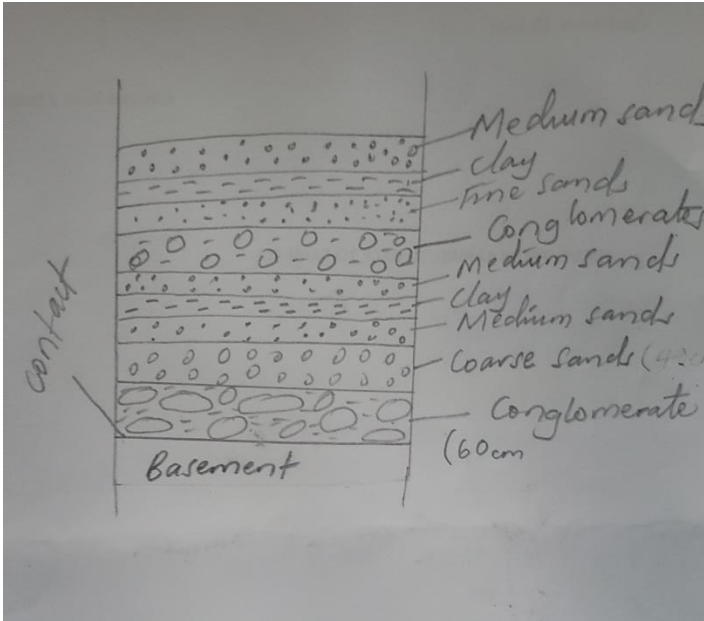 Medium sand
Clay
Fine sands
Conglomerates
Medium sands
Clay
Medium sands
Coarse sands
Conglomerate
(60cm
contact
Basement